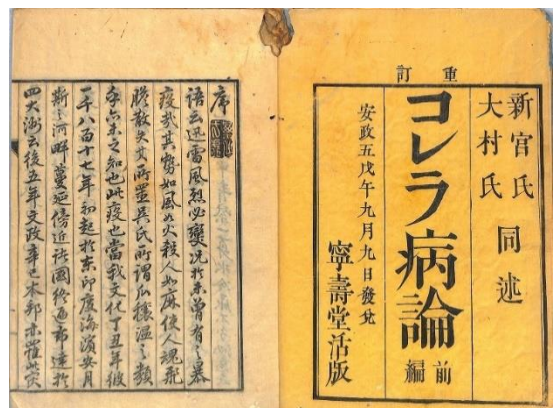 重訂
新宮氏
大村氏
同述
コレラ病論
前編
安政五戊午九月九日發兌
寧壽堂活版
序
語云迅雷風烈必變況於未曾有之暴
疫哉其勢如風如火殺人如麻使人魂飛
膽散矣 吳氏所謂瓜瓤瘟之類
乎亦未之知也此疫也當我文化丁丑年彼
一千八百十七年初起於東印度海濱安月
斯之河畔蔓延傍近諸國終遍布達於
四大洲云後五年文政辛巳本邦亦罹此